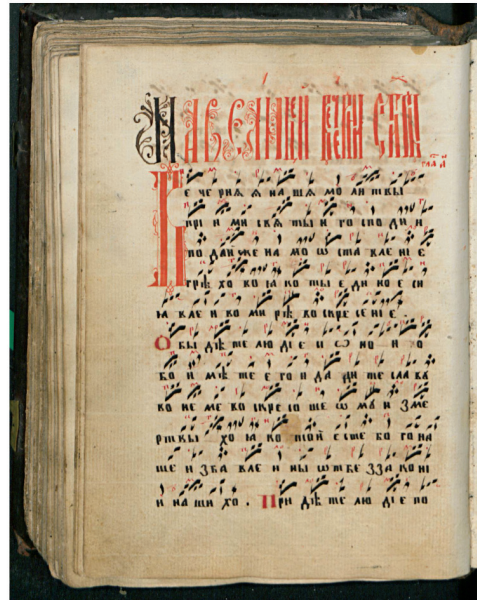 На великꙋи вечерни сти҃ры
гла҃ а҃
Вечернѧѧ нашѧ молитвы
прїими свѧтыи господи и
подаи же намо ѡставленїе
грѣхово ꙗко ты единое си
ꙗвлеи ко мирѣ воскресенїе .
Ѻбыдѣте людїе сионо и ѡ
боимѣте его и дадите славꙋ
во неме воскресошемꙋ из ме
ртвы хо ꙗко той есте бого на
ше избавлеи ны ѿ беззаконї
и нашихо . Придѣте людїе по